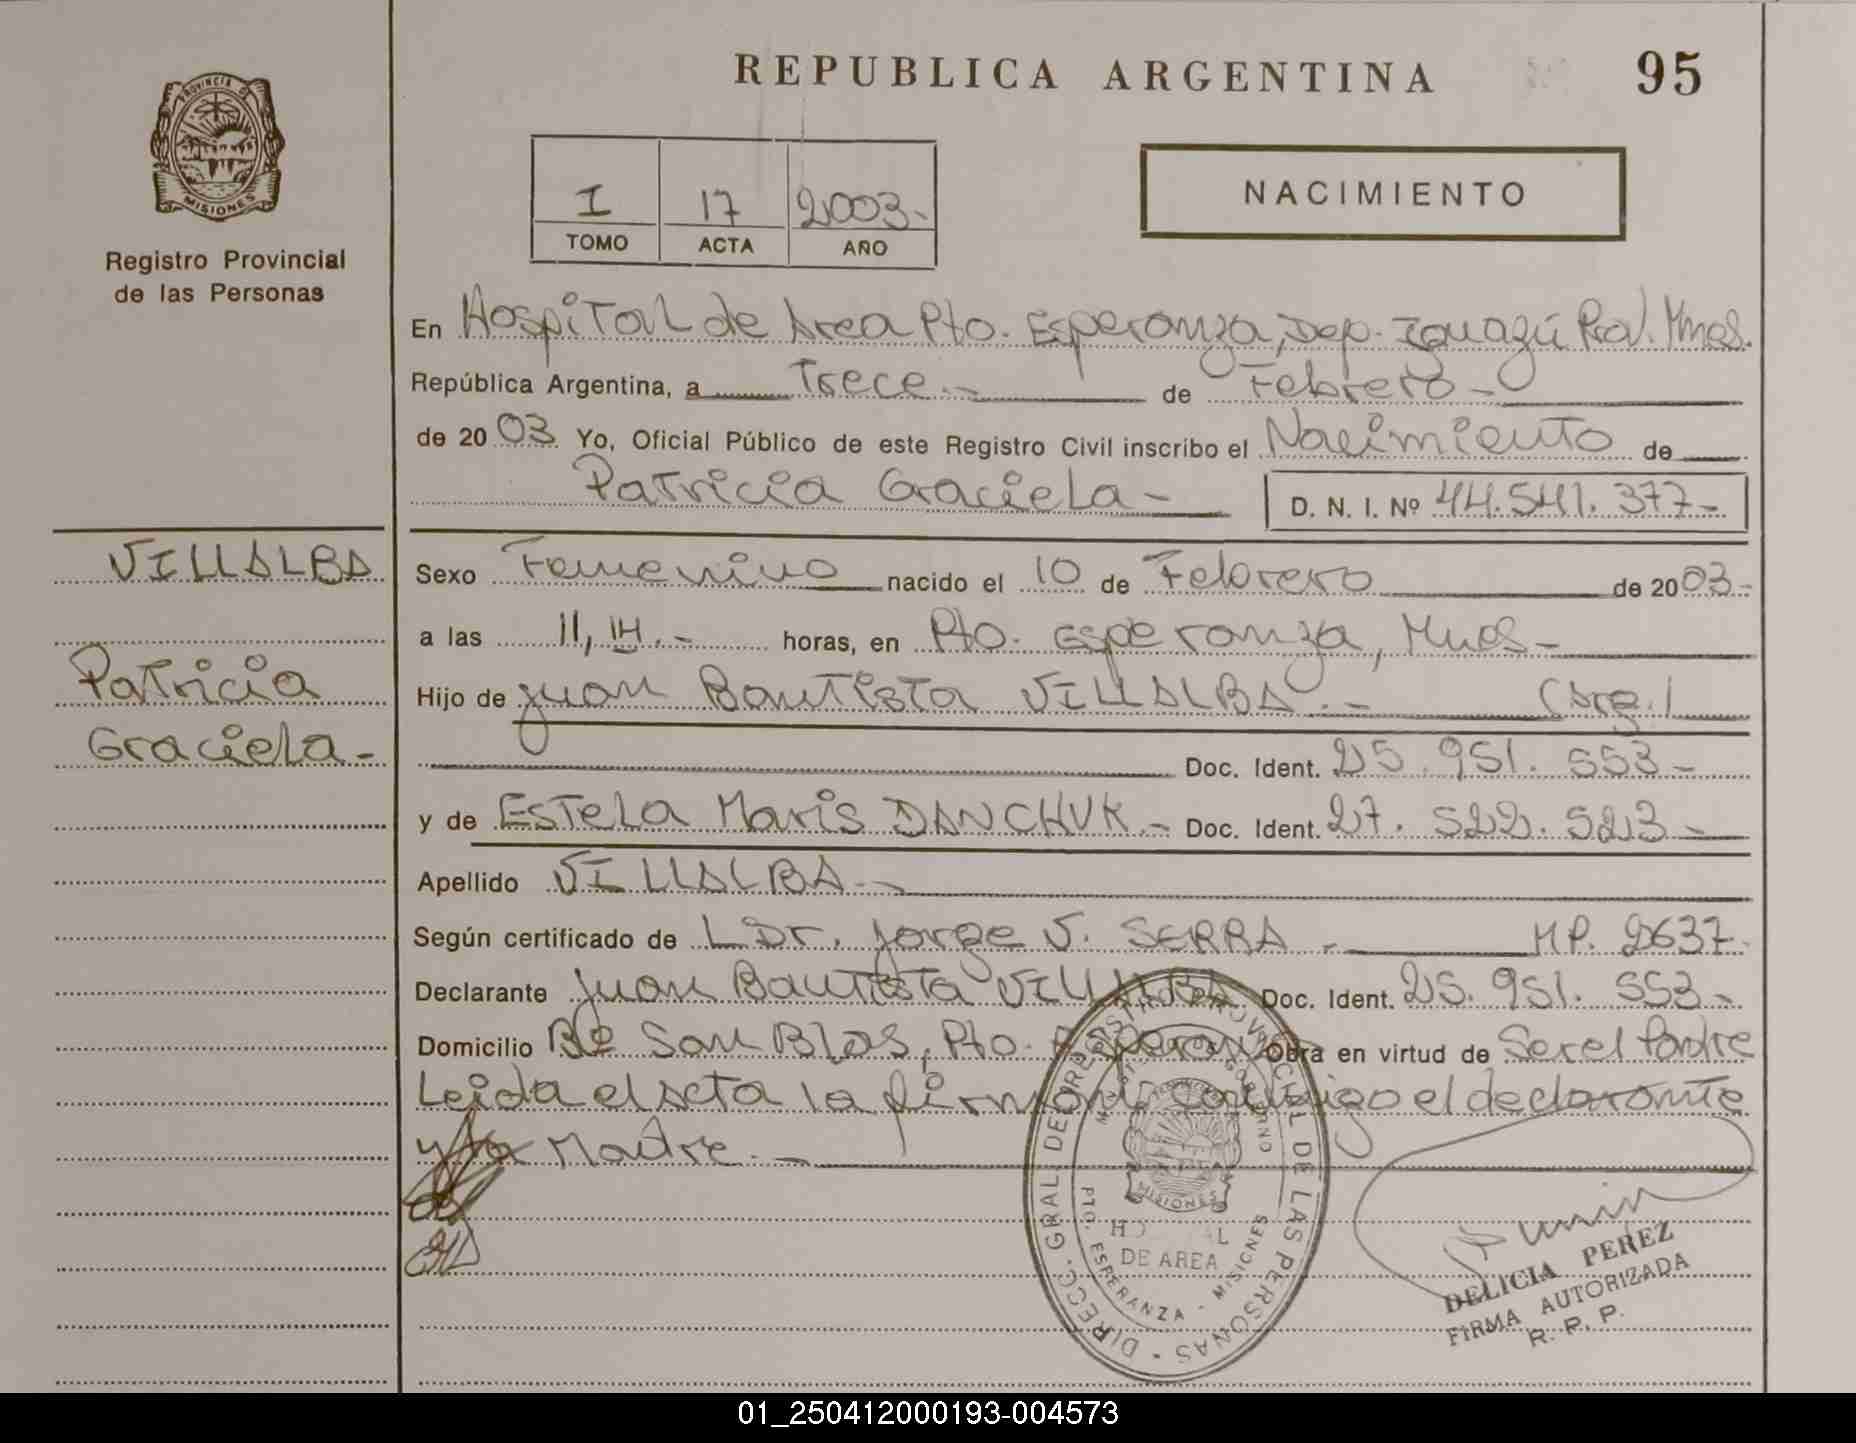 REPUBLICA ARGENTINA 95
PROVINCIA DE
MISIONES
Registro Provincial
de las Personas
I 17 2003.-
TOMO ACTA AÑO
NACIMIENTO
En Hospital de Area Pto. Esperanza, Dep. Iguazú Prov. Mnes.
República Argentina, a Trece.- de Febrero-
de 2003 Yo, Oficial Público de este Registro Civil inscribo el Nacimiento de
Patricia Graciela- D. N. I. Nº 44.541.377-
VILLALBA
Patricia
Graciela-
Sexo Femenino nacido el 10 de Febrero de 2003-
a las 11,14.- horas, en Pto. Esperanza, Mnes-
Hijo de Juan Bautista VILLALBA.- (Arg.)
Doc. Ident. 25.951.553-
y de Estela Maris DANCHUK.- Doc. Ident. 27.522.523-
Apellido VILLALBA-
Según certificado de L Dr. Jorge V. SERRA.- MP. 2637-
Declarante Juan Bautista VILLALBA Doc. Ident. 25.951.553-
Domicilio Bº San Blas, Pto. Esperanza Obra en virtud de Ser el Padre
Leida el acta la firman conmigo el declarante
y la Madre.-
DIRECC. GRAL. DE REGISTRO PROVINCIAL DE LAS PERSONAS
MISIONES
DE AREA
PTO. ESPERANZA - MISIONES
DELICIA PEREZ
FIRMA AUTORIZADA
R. P. P.
01_250412000193-004573